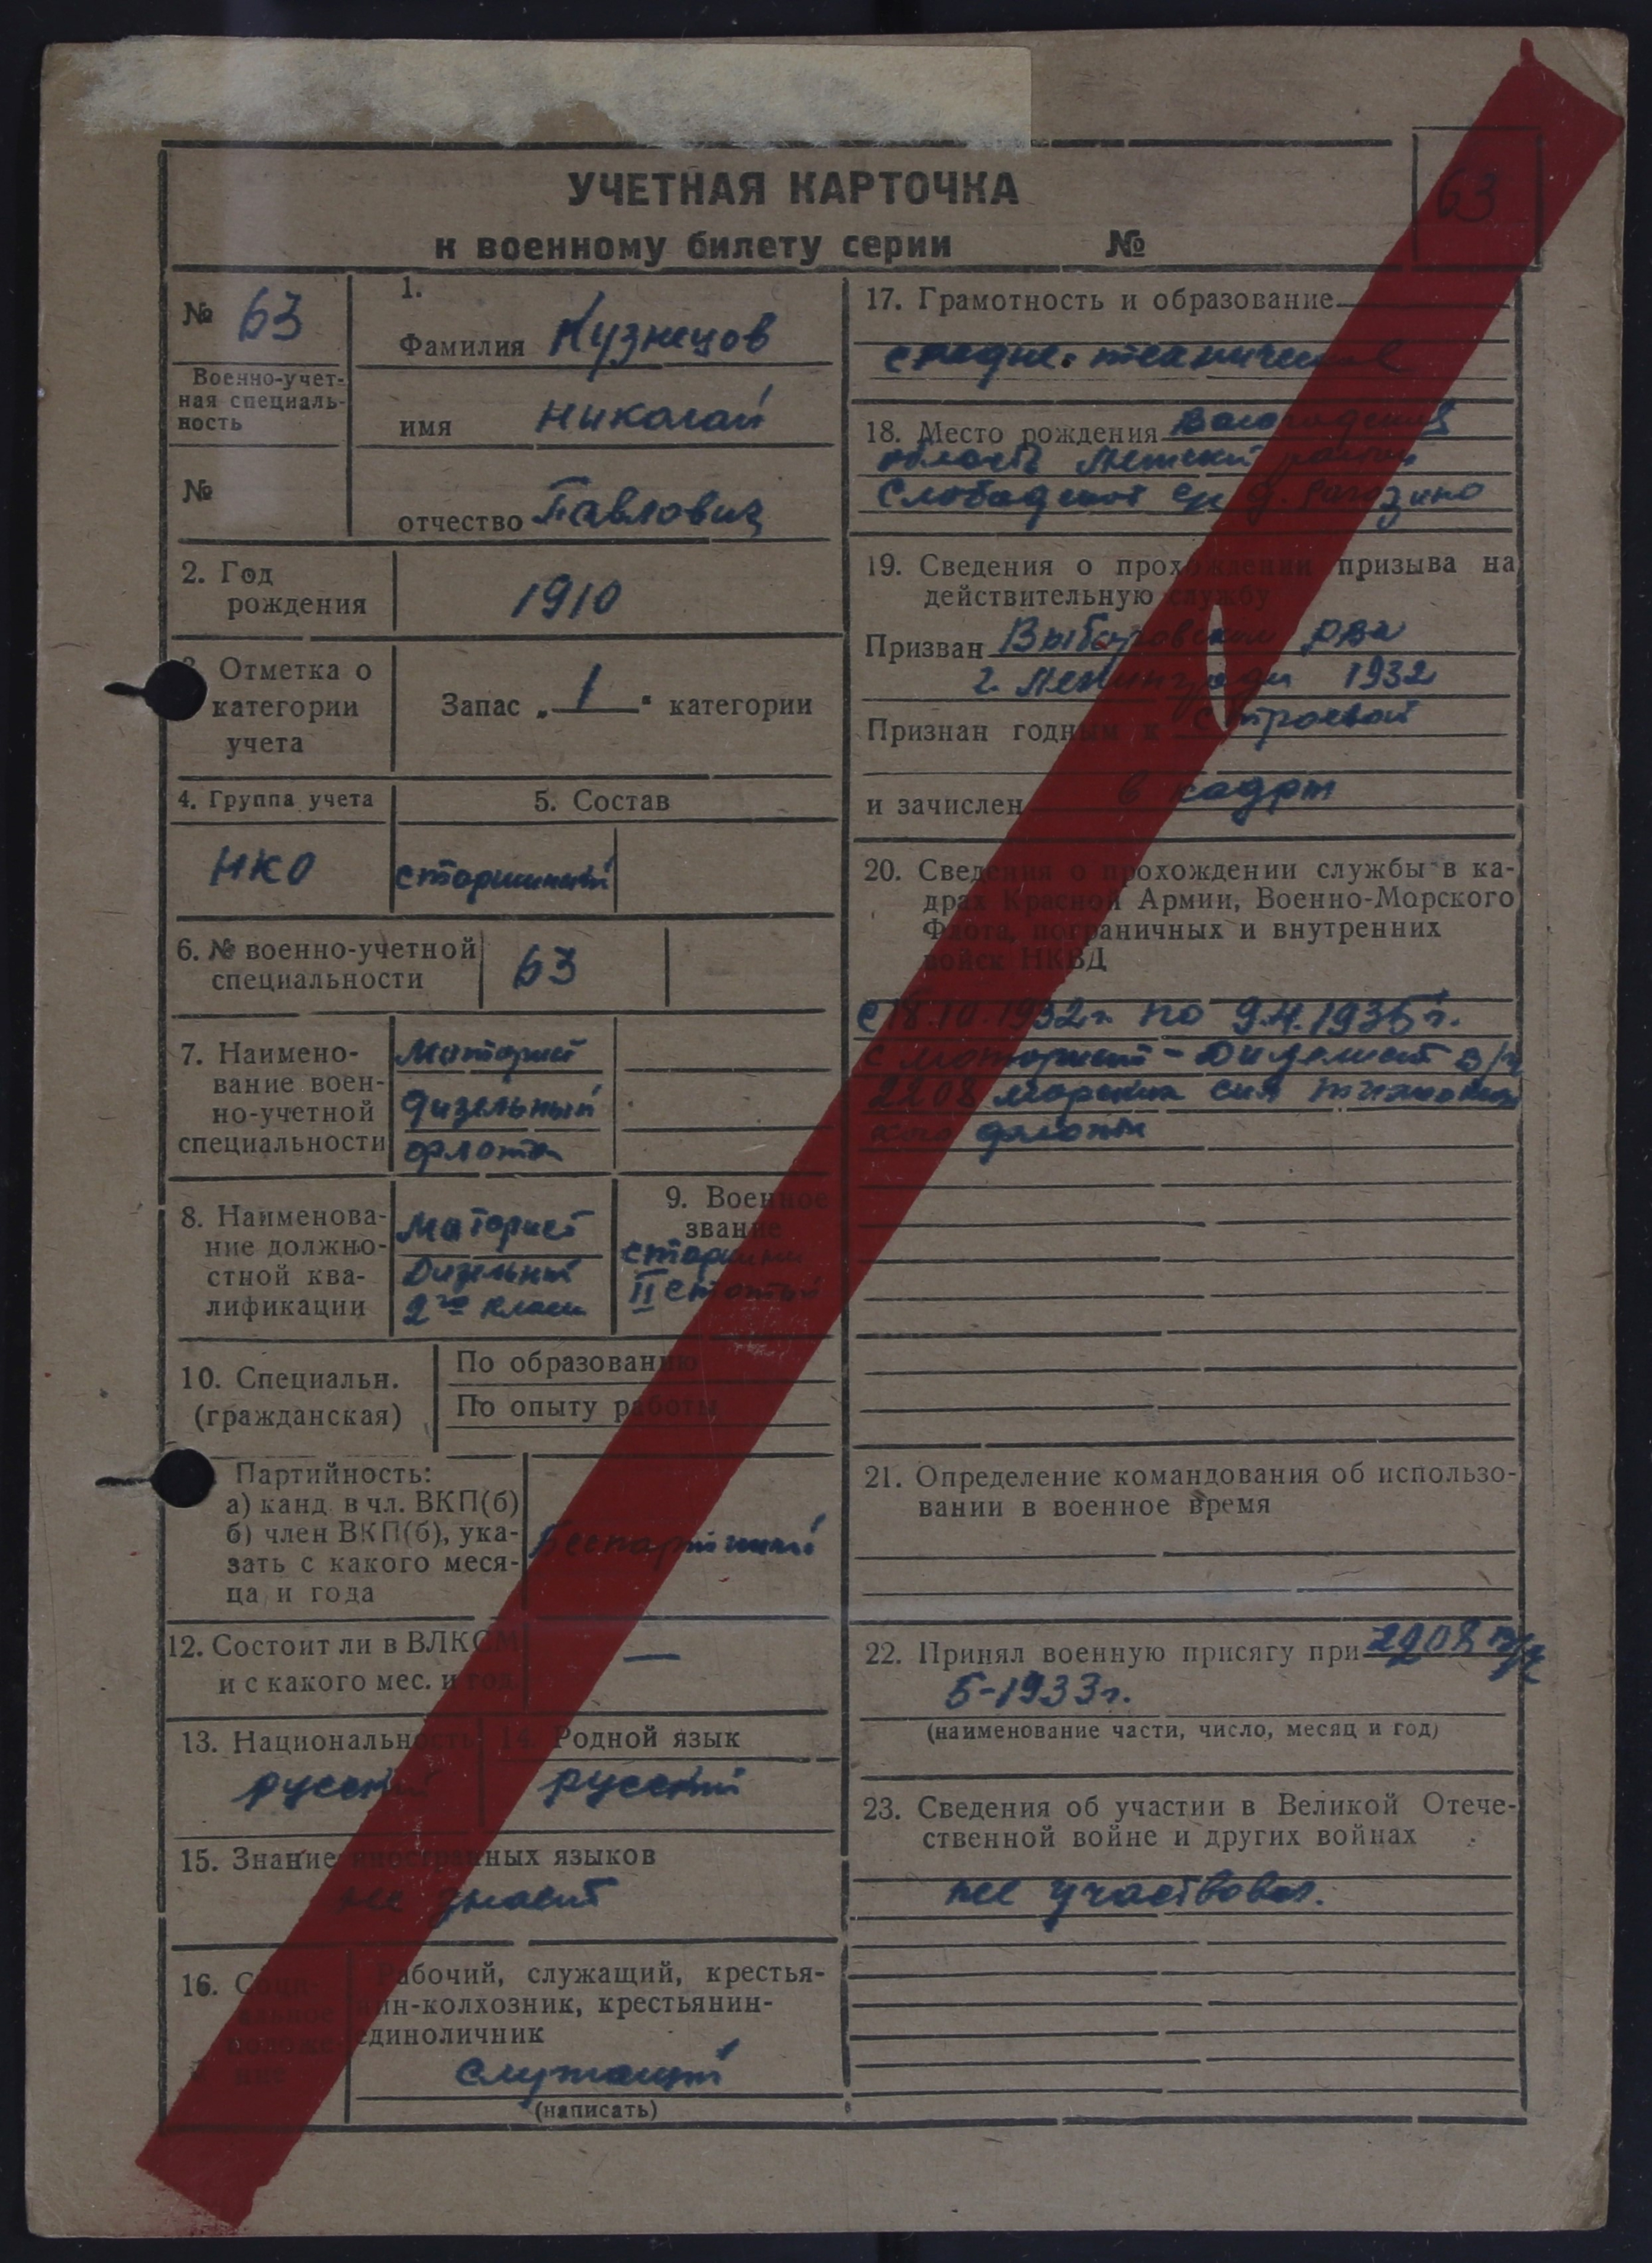 УЧЕТНАЯ КАРТОЧКА
к военному билету серии №
63
№ 63
Военно-учет-
ная специаль-
ность
№
1.
Фамилия Кузнецов
имя Николай
отчество Павлович
2. Год
рождения
1910
3. Отметка о
категории
учета
Запас „ 1 " категории
4. Группа учета
5. Состав
НКО
старшинский
6. № военно-учетной
специальности
63
7. Наимено-
вание воен-
но-учетной
специальности
Моторист
дизельный
флота
8. Наименова-
ние должно-
стной ква-
лификации
Моторист
Дизельный
2го класса
9. Военное
звание
старшина
II статьи
10. Специальн.
(гражданская)
По образованию
По опыту работы
Партийность:
а) канд. в чл. ВКП(б)
б) член ВКП(б), ука-
зать с какого меся-
ца и года
Беспартийный
12. Состоит ли в ВЛКСМ
и с какого мес. и год.
—
13. Национальность
русский
14. Родной язык
русский
15. Знание иностранных языков
не знает
16. Соци-
альное
положе-
ние
Рабочий, служащий, крестья-
нин-колхозник, крестьянин-
единоличник
Служащий
(написать)
17. Грамотность и образование
средне-техническое
18. Место рождения Вологодская
область район
Слободской с/с д. Рогозино
19. Сведения о прохождении призыва на
действительную службу
Призван Выборгским РВК
г. Ленинграда 1932
Признан годным к строевой
и зачислен в кадры
20. Сведения о прохождении службы в ка-
драх Красной Армии, Военно-Морского
Флота, пограничных и внутренних
войск НКВД
с 18.10.1932г. по 1936г.
моторист-дизелист в/ч
2208 морских сил Тихоокеан
ского флота
21. Определение командования об использо-
вании в военное время
22. Принял военную присягу при 2208 в/ч
5-1933г.
(наименование части, число, месяц и год)
23. Сведения об участии в Великой Отече-
ственной войне и других войнах
не участвовал.